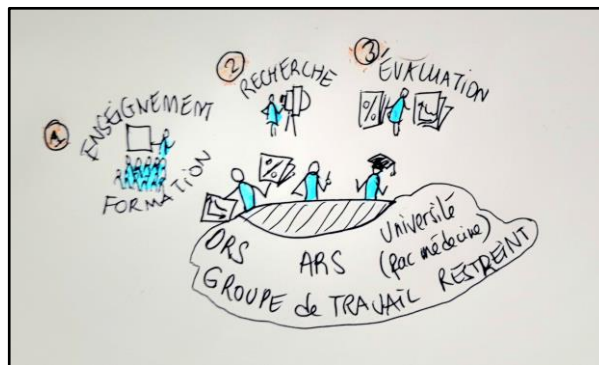 1 ENSEIGNEMENT
FORMATION
2 RECHERCHE
3 ÉVALUATION
%
%
ORS ARS Université
(fac médecine)
GROUPE de TRAVAIL RESTREINT